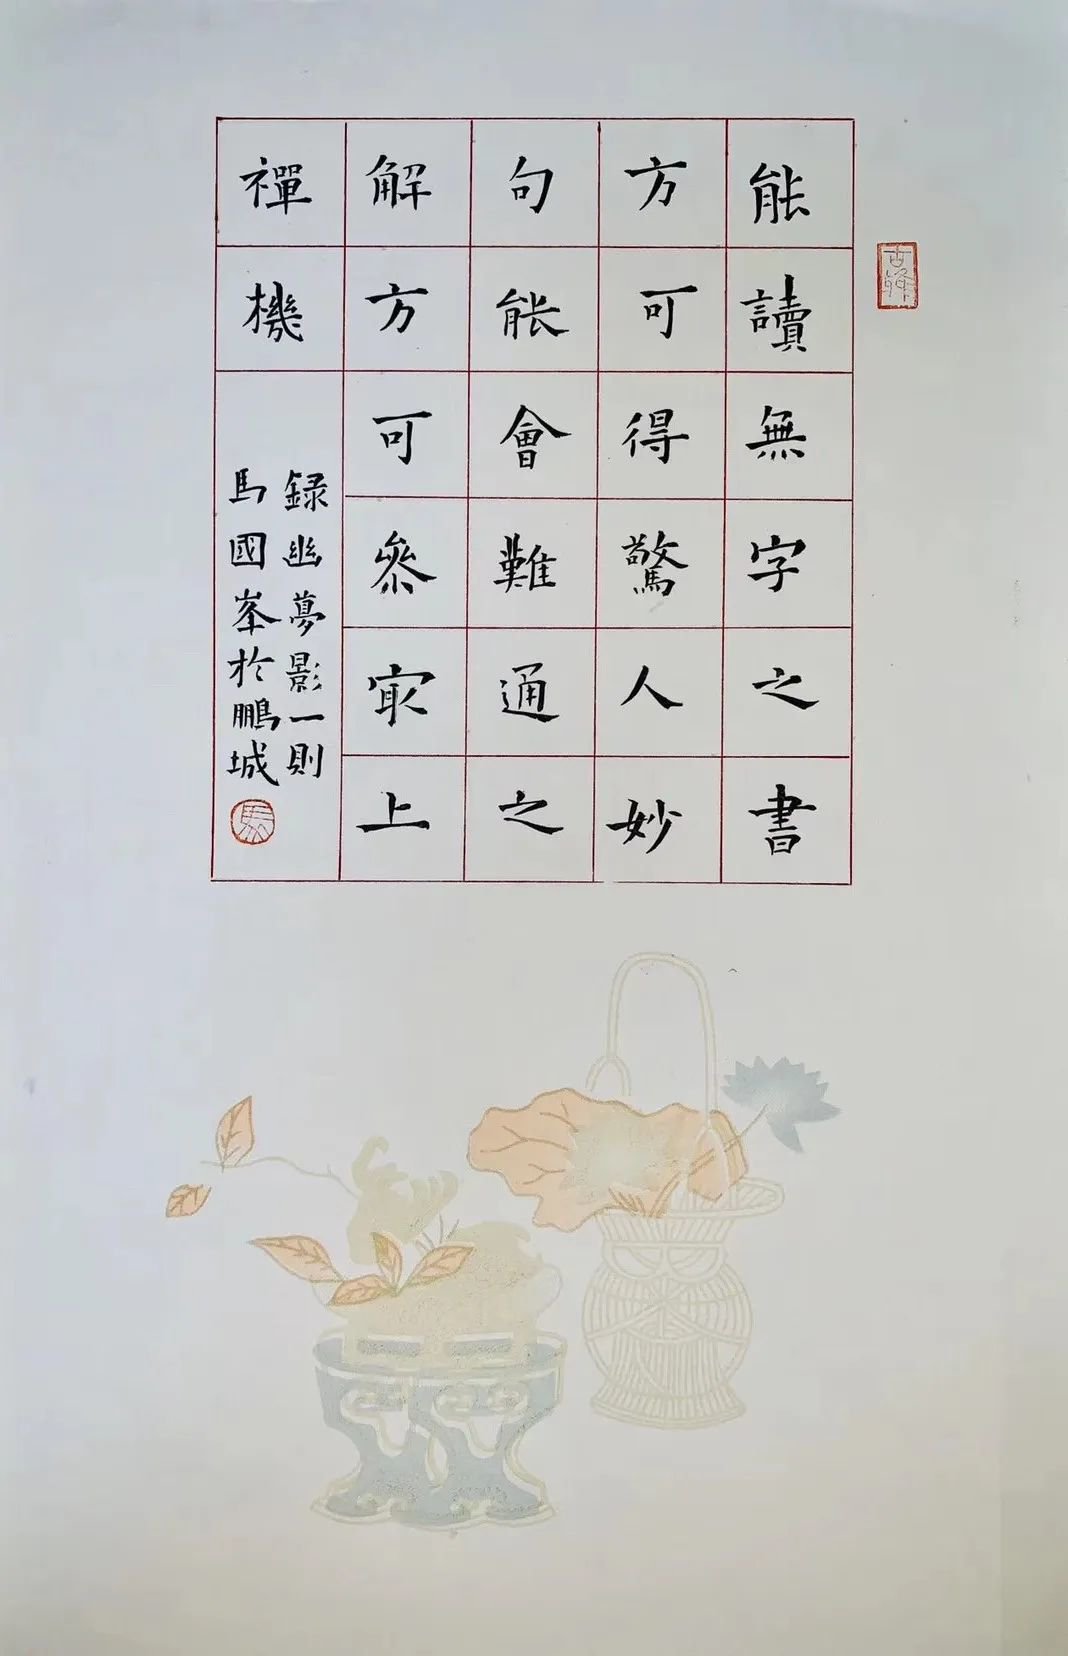 能讀無字之書
方可得驚人妙
句能會難通之
解方可參㝡上
禪機
録幽夢影一則
馬國峯於鵬城
馬